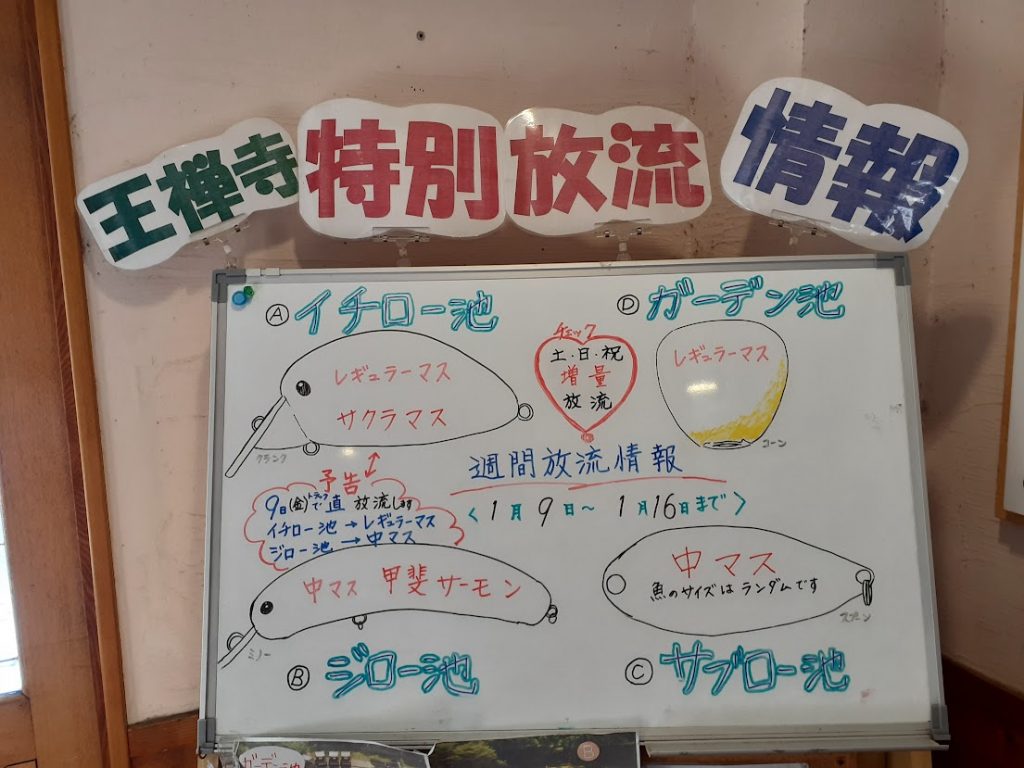 王禅寺 特別 放流 情報
Ⓐ イチロー池
レギュラーマス
サクラマス
クランク
チェック
土・日・祝
増量
放流
Ⓓ ガーデン池
レギュラーマス
コーン
週間放流情報
〈1月9日〜1月16日まで〉
予告
9日(金)トラックで直放流します
イチロー池→レギュラーマス
ジロー池→中マス
中マス 甲斐サーモン
ミノー
Ⓑ ジロー池
中マス
魚のサイズはランダムです
スプーン
Ⓒ サブロー池
ガーデン池
B